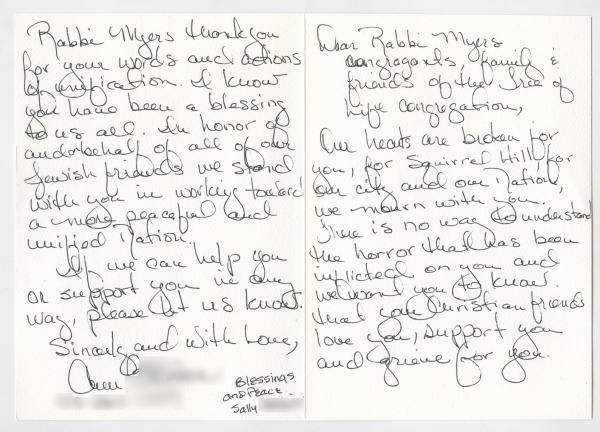 Rabbi Myers thank you
for your words and actions
of unification. I know
you have been a blessing
to us all. In honor of
and on behalf of all of our
Jewish friends we stand
with you in working toward
a more peaceful and
unified Nation.
If we can help you
or support you in any
way, please let us know.
Sincerely and with Love,
Ann
Blessings
and Peace.
Sally
Dear Rabbi Myers
congregants, family &
friends of the Tree of
Life congregation,
Our hearts are broken for
you, for Squirrel Hill, for
our city and our Nation,
we mourn with you.
There is no way to understand
the horror that has been
inflicted on you and
we want you to know
that your Christian friends
love you, support you
and grieve for you.